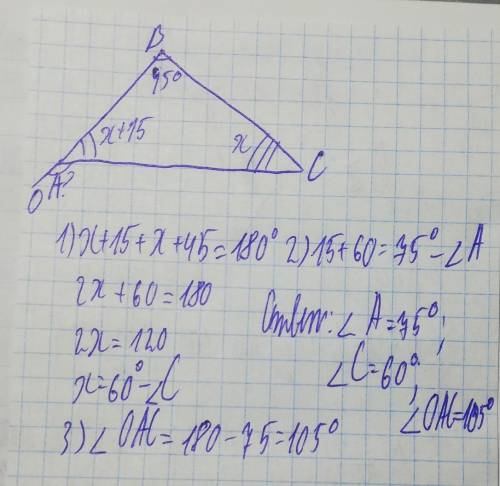 B
45°
x+15
x
C
A?
O
1) x+15+x+45=180°
2x+60=180
2x=120
x=60°-∠C
2) 15+60=75°-∠A
3) ∠OAC=180-75=105°
Ответ: ∠A=75°;
∠C=60°;
∠OAC=105°